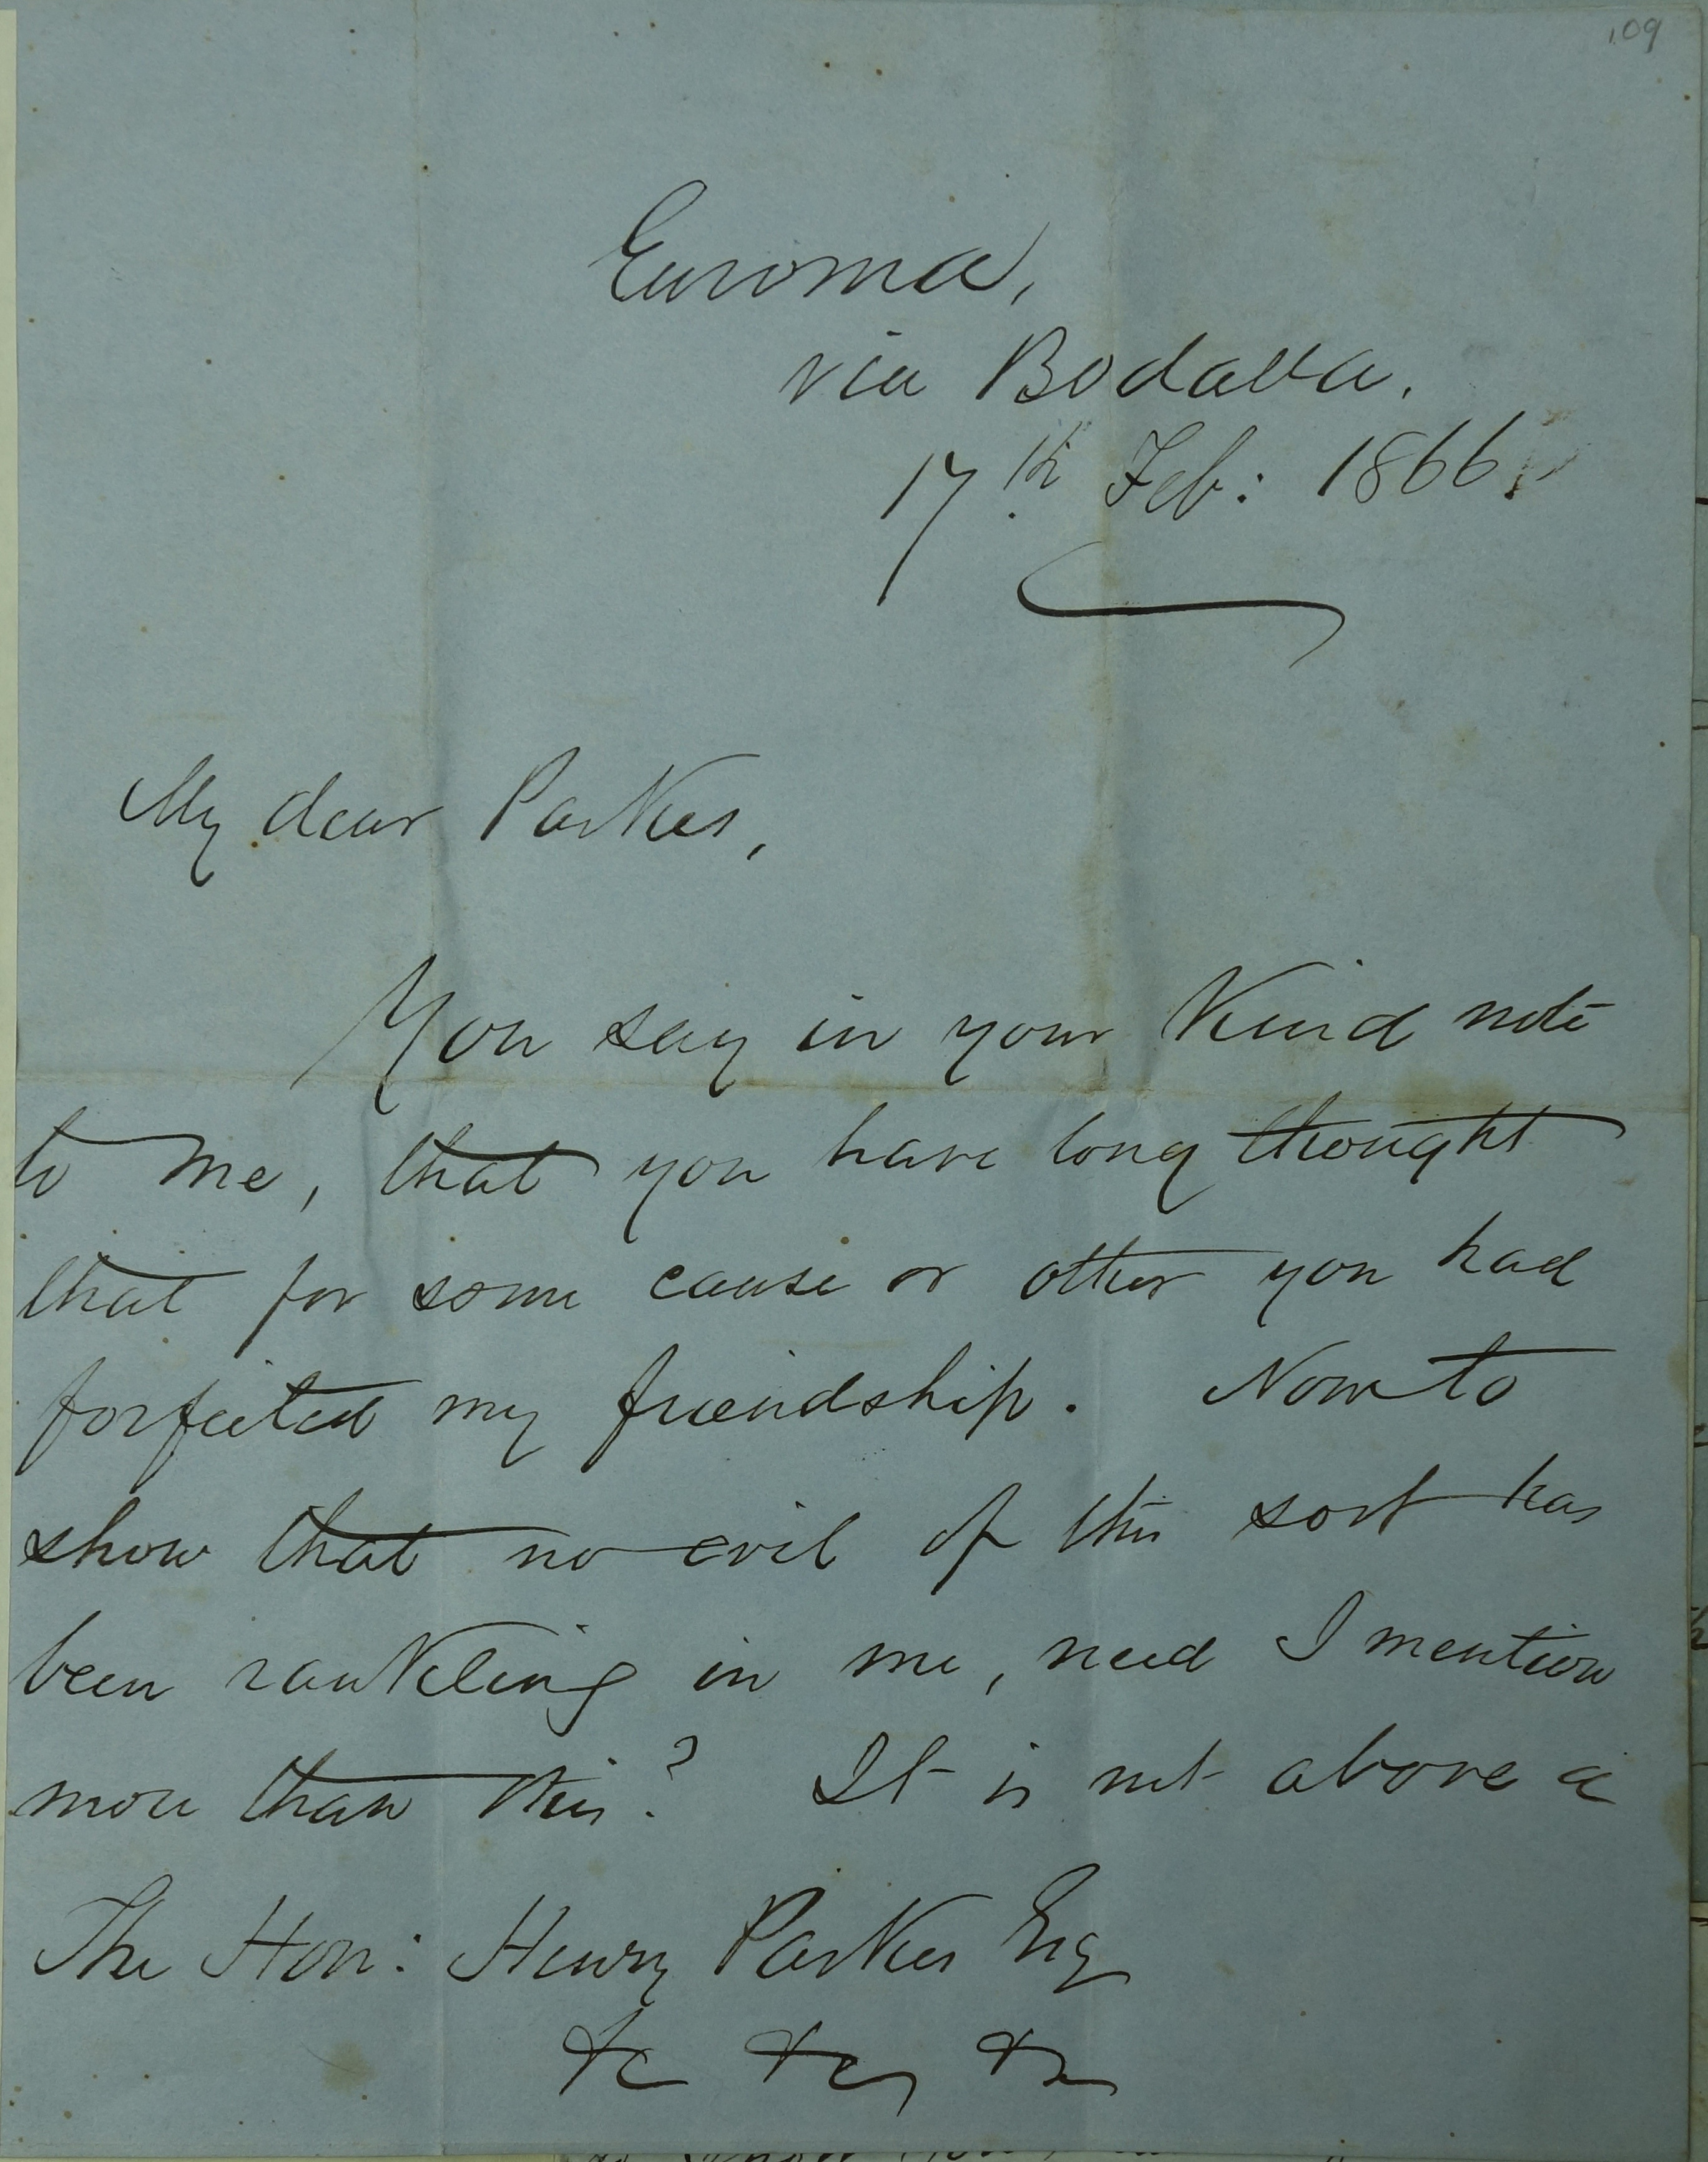 109
Euroma,
via Bodalla.
17th Feb: 1866.
My dear Parkes,
You say in your kind note
to me, that you have long thought
that for some cause or other you had
forfeited my friendship. Now to
show that no evil of this sort has
been rankling in me, need I mention
more than this? It is not above a
The Hon: Henry Parkes Esq
&c &c &c